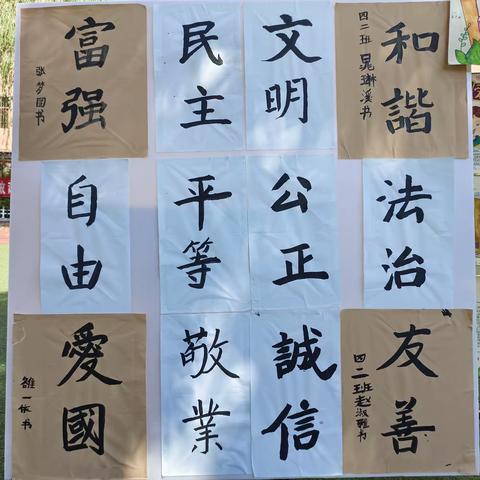 富强
张梦圆书
民主
文明
和諧
四二班 晁琳溪书
自由
平等
公正
法治
愛國
一依书
敬業
誠信
友善
四二班赵淑雅书